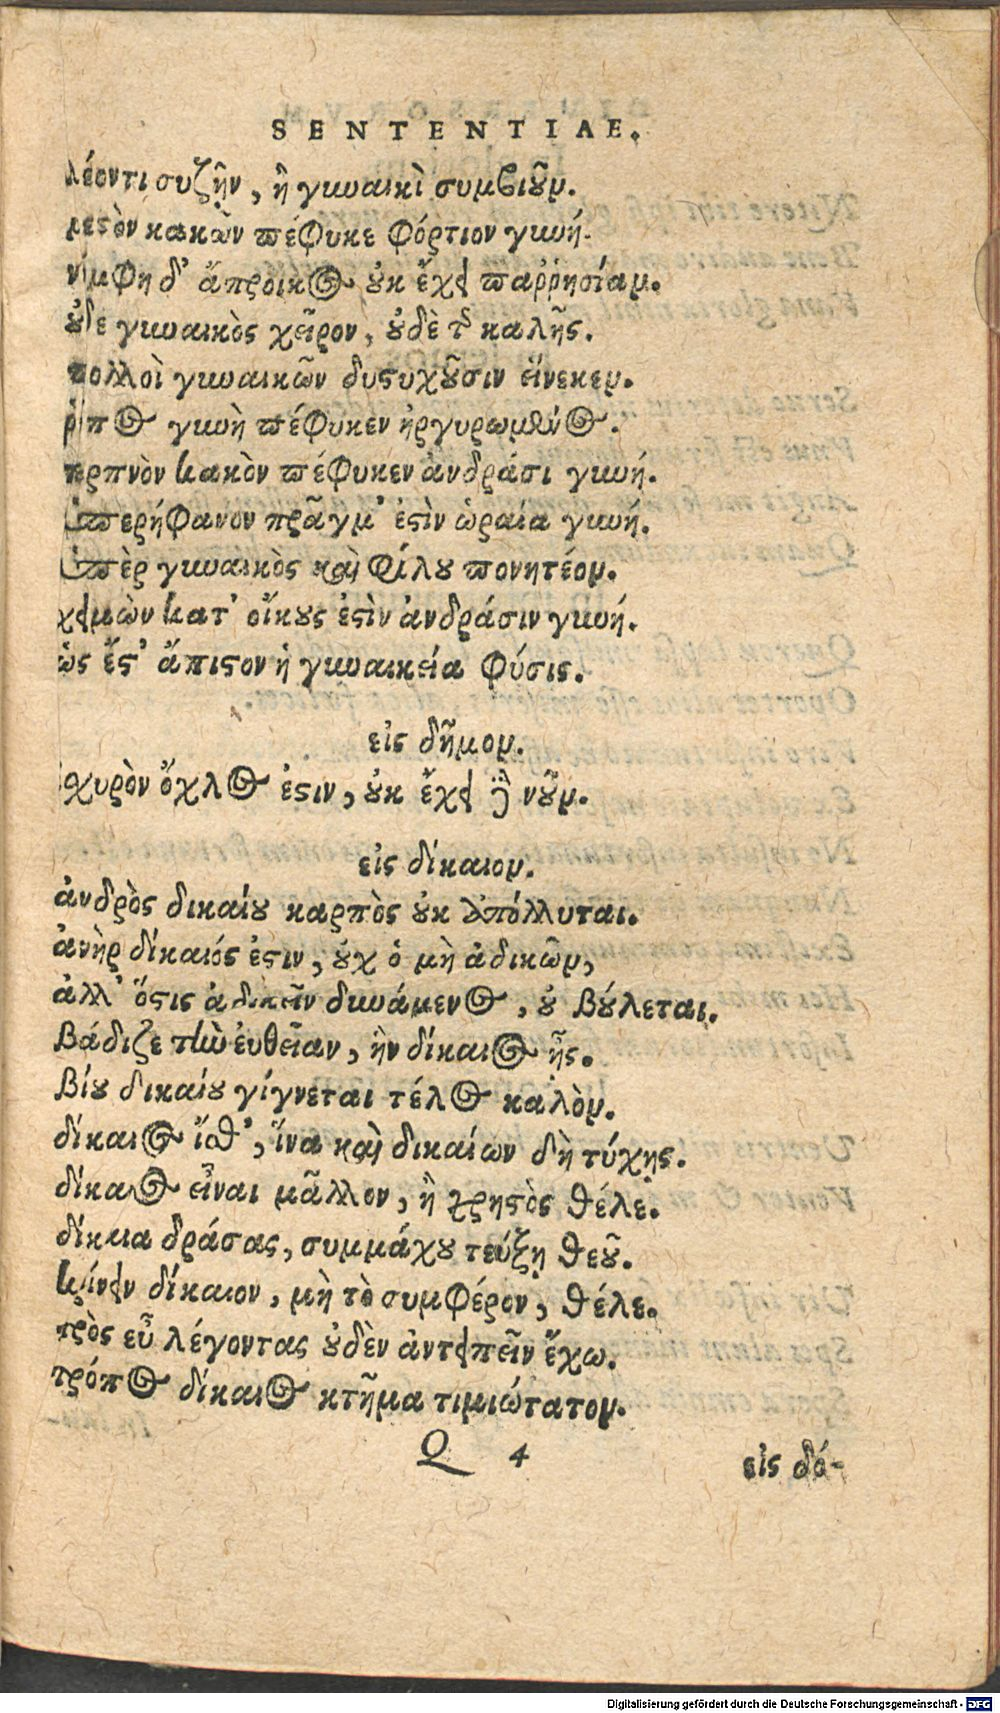 SENTENTIAE.
λέοντι συζῆν, ἢ γυναικὶ συμβιοῦν.
μεστὸν κακῶν πέφυκε φόρτιον γυνή.
νύμφη δ' ἄπροικος οὐκ ἔχει παῤῥησίαν.
οὐδὲ γυναικὸς χεῖρον, οὐδὲ τῆς καλῆς.
πολλοὶ γυναικῶν δυστυχοῦσιν εἵνεκεν.
ῥύπος γυνὴ πέφυκεν ἠργυρωμένος.
τερπνὸν κακὸν πέφυκεν ἀνδράσι γυνή.
ὑπερήφανον πρᾶγμ' ἐστὶν ὡραία γυνή.
ὑπὲρ γυναικὸς καὶ φίλου πονητέον.
χειμὼν κατ' οἴκους ἐστὶν ἀνδράσιν γυνή.
ὡς ἔστ' ἄπιστον ἡ γυναικεία φύσις.
εἰς δῆμον.
ἰσχυρὸν ὄχλος ἐστιν, οὐκ ἔχει δὲ νοῦν.
εἰς δίκαιον.
ἀνδρὸς δικαίου καρπὸς οὐκ ἀπόλλυται.
ἀνὴρ δίκαιός ἐστιν, οὐχ ὁ μὴ ἀδικῶν,
ἀλλ' ὅστις ἀδικεῖν δυνάμενος, οὐ βούλεται.
βάδιζε τὴν εὐθεῖαν, ἢν δίκαιος ᾖς.
βίου δικαίου γίγνεται τέλος καλὸν.
δίκαιος ἴσθ', ἵνα καὶ δικαίων δὴ τύχῃς.
δίκαιος εἶναι μᾶλλον, ἢ χρηστὸς θέλε.
δίκαια δράσας, συμμάχου τεύξῃ θεοῦ.
κρίνειν δίκαιον, μὴ τὸ συμφέρον, θέλε.
πρὸς εὖ λέγοντας οὐδὲν ἀντειπεῖν ἔχω.
τρόπος δίκαιος κτῆμα τιμιώτατον.
Q 4 εἰς δό-
Digitalisierung gefördert durch die Deutsche Forschungsgemeinschaft - DFG